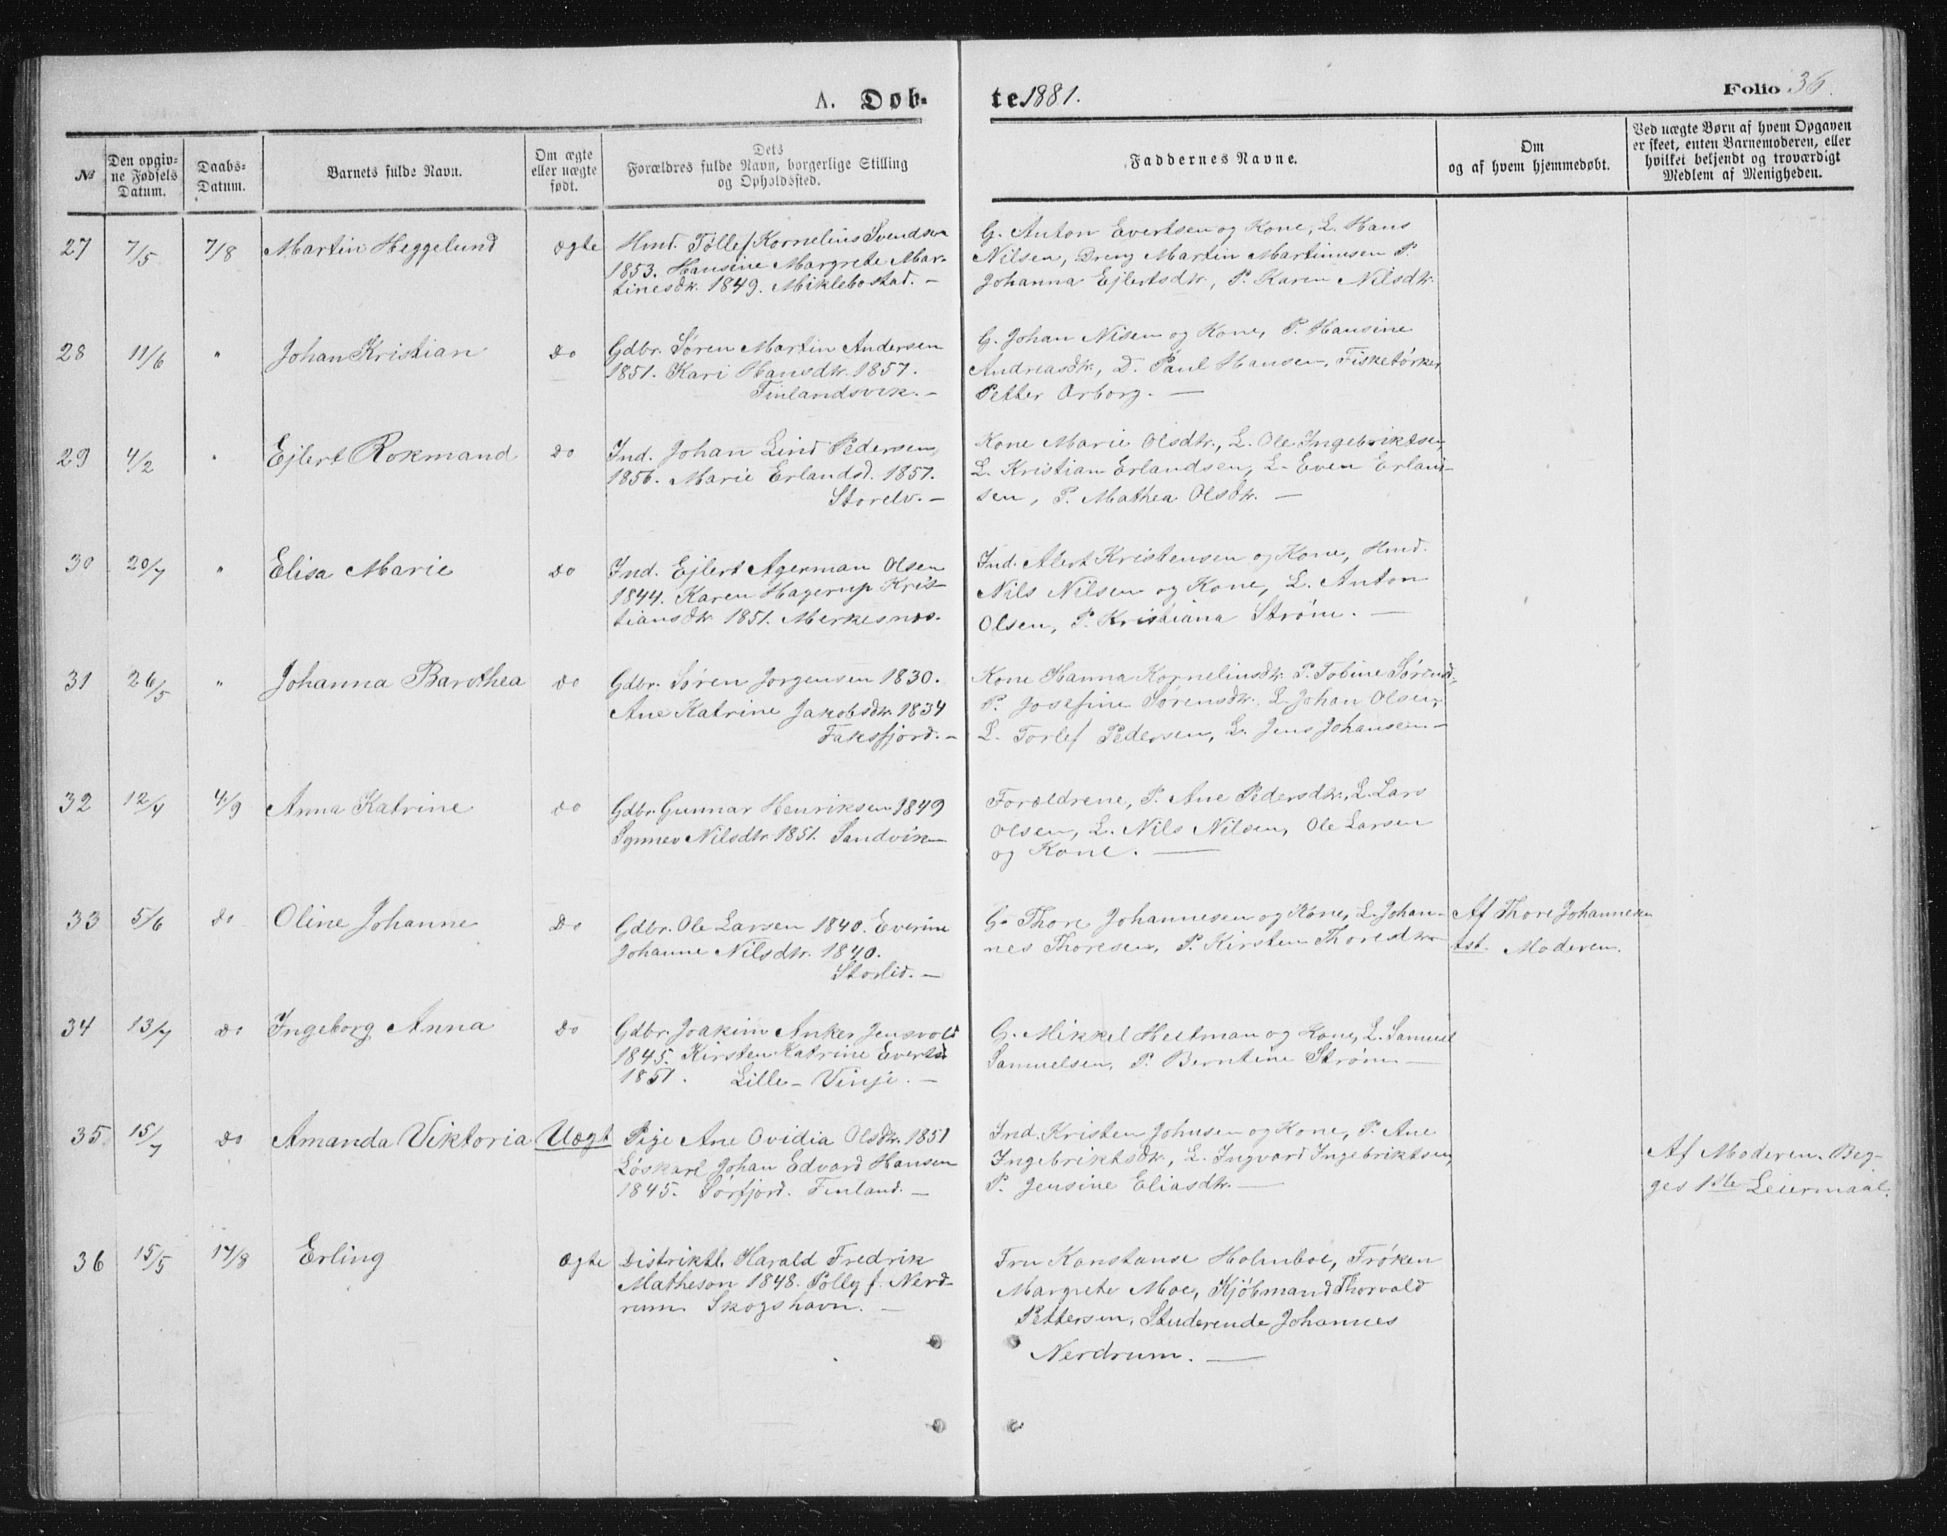 A. Døb- te 1881. Folio 36.
№ Den opgivne Fødsels Datum. Daabs-Datum. Barnets fulde Navn. Om ægte eller uægte født. Dets Forældres fulde Navn, borgerlige Stilling og Opholdssted. Faddernes Navne. Om og af hvem hjemmedøbt. Ved uægte Børn af hvem Opgaven er skeet, enten Barnemoderen, eller hvilket beljendt og troværdigt Medlem af Menigheden.
27 7/5 7/8 Martin Heggelund ægte Hmd. Tøllef Kornelius Svendsen
1853. Hansine Margrete Mar-
tinesdtr. 1849. Miklebostad. -
G. Anton Evertsen og Kone, L. Hans
Nilsen, Dreng Martin Martinusen P.
Johanna Ejlertsdtr, P. Karen Nilsdtr.
28 11/6 " Johan Kristian do Gdbr. Søren Martin Andersen
1851. Kari Hansdtr. 1857.
Finlandsvik. -
G. Johan Nisen og Kone, P. Hansine
Andreasdtr, D. Paul Hansen, Fisketørker
Petter Orborg. -
29 4/2 " Ejlert Rokmand do Ind. Johan Lind Pedersen,
1856. Marie Erlandsd. 1857.
Storelv. -
Kone Marie Olsdtr., L. Ole Ingebriktsen,
L. Kristian Erlandsen, L. Even Erland-
sen, P. Mathea Olsdtr. -
30 20/7 " Elisa Marie do Ind. Ejlert Agerman Olsen
1844. Karen Hagerup Kris-
tiansdtr. 1851. Merkesnes.
Ind. Alert Kristensen og Kone, Hmd.
Nils Nilsen og Kone, L. Anton
Olsen, P. Kristiana Strøm. -
31 26/5 " Johanna Barothea do Gdbr. Søren Jorgensen 1830.
Ane Katrine Jakobsdtr. 1834
Faksfjord. -
Kone Hanna Kornelinsdtr. P. Tobine Sørensd.
P. Josefine Sørensdtr. L. Johan Olsen,
L. Torlef Pedersen, L. Jens Johansen -
32 12/7 4/9 Anna Katrine do Gdbr. Gunnar Henriksen 1849
Synnev Nilsdtr. 1851. Sandvik
Forældrene, P. Ane Pedersdtr, L. Lars
Olsen, L. Nils Nilsen, Ole Larsen
og Kone. -
33 5/6 do Oline Johanne do Gdbr. Ole Larsen 1840. Everine
Johanne Nilsdtr. 1840.
Storlid. -
G. Thore Johannesen og Kone, L. Johan-
nes Thoresen, P. Kirsten Thoresdtr.
Af Thore Johannesen
tst. Moderen.
34 13/7 do Ingeborg Anna do Gdbr. Joakim Anker Jensvold
1845. Kirsten Katrine Evertsd.
1851. Lille-Vinje. -
G. Mikkel Heitman og Kone, L. Samuel
Samuelsen, P. Berntine Strøm -
35 15/7 do Amanda Viktoria Uægt Pige Ane Ovidia Olsdtr. 1851
Løskarl Johan Edvard Hansen
1845. Sørfjord. Finland. -
Ind. Kristen Johnsen og Kone, P. Ane
Ingebriktsdtr, L. Ingvard Ingebriktsen,
P. Jensine Eliasdtr. -
Af Moderen. Beg-
ges 1ste Leiermaal.
36 15/5 17/8 Erling ægte Distriktl. Harald Fredrik
Matheson 1848. Polly f. Nerd-
rum. Skogshavn. -
Fru Konstanse Holmboe, Frøken
Margrete Moe, Kjöbmand Thorvald
Pettersen, Studerende Johannes
Nerdrum. -